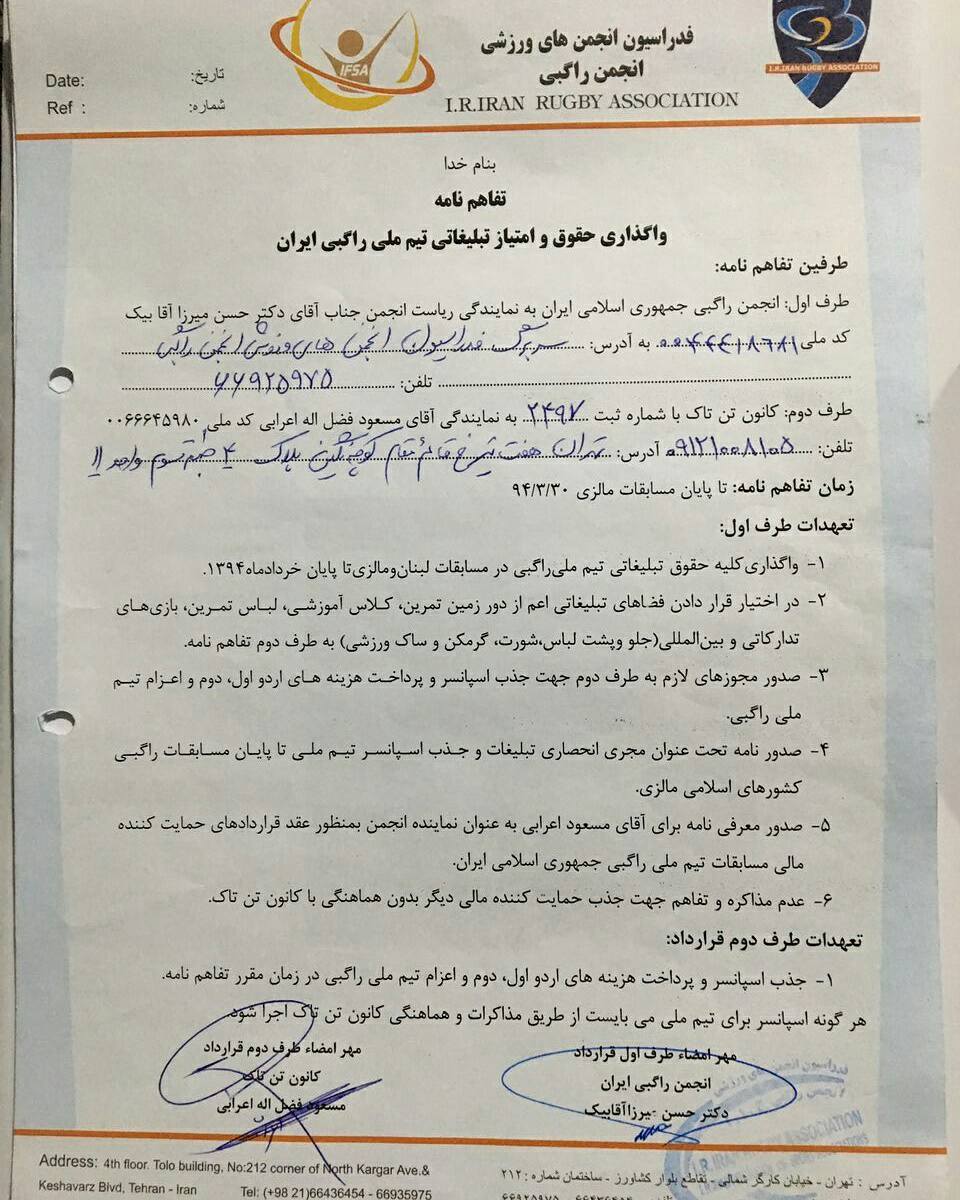 فدراسیون انجمن های ورزشی
انجمن راگبی
I.R.IRAN RUGBY ASSOCIATION
IFSA
I.R.IRAN RUGBY ASSOCIATION
Date: تاریخ:
Ref : شماره:
بنام خدا
تفاهم نامه
واگذاری حقوق و امتیاز تبلیغاتی تیم ملی راگبی ایران
طرفین تفاهم نامه:
طرف اول: انجمن راگبی جمهوری اسلامی ایران به نمایندگی ریاست انجمن جناب آقای دکتر حسن میرزا آقا بیک
کد ملی به آدرس: فدراسیون انجمن های ورزشی انجمن راگبی
تلفن: ۶۶۹۲۵۹۷۵
طرف دوم: کانون تن تاک با شماره ثبت ۲۴۹۷ به نمایندگی آقای مسعود فضل اله اعرابی کد ملی ۰۰۶۶۶۴۵۹۸۰
تلفن: ۰۹۱۲۱۰۰۸۱۰۵ آدرس: تهران هفت تیر خ قائم مقام کوچه پلاک ۴ طبقه سوم واحد ۱۱
زمان تفاهم نامه: تا پایان مسابقات مالزی ۹۴/۳/۳۰
تعهدات طرف اول:
۱- واگذاری کلیه حقوق تبلیغاتی تیم ملی راگبی در مسابقات لبنان ومالزی تا پایان خردادماه ۱۳۹۴.
۲- در اختیار قرار دادن فضاهای تبلیغاتی اعم از دور زمین تمرین، کلاس آموزشی، لباس تمرین، بازی های
تدارکاتی و بین المللی(جلو وپشت لباس،شورت، گرمکن و ساک ورزشی) به طرف دوم تفاهم نامه.
۳- صدور مجوزهای لازم به طرف دوم جهت جذب اسپانسر و پرداخت هزینه های اردو اول، دوم و اعزام تیم
ملی راگبی.
۴- صدور نامه تحت عنوان مجری انحصاری تبلیغات و جذب اسپانسر تیم ملی تا پایان مسابقات راگبی
کشورهای اسلامی مالزی.
۵- صدور معرفی نامه برای آقای مسعود اعرابی به عنوان نماینده انجمن بمنظور عقد قراردادهای حمایت کننده
مالی مسابقات تیم ملی راگبی جمهوری اسلامی ایران.
۶- عدم مذاکره و تفاهم جهت جذب حمایت کننده مالی دیگر بدون هماهنگی با کانون تن تاک.
تعهدات طرف دوم قرارداد:
۱- جذب اسپانسر و پرداخت هزینه های اردو اول، دوم و اعزام تیم ملی راگبی در زمان مقرر تفاهم نامه.
هر گونه اسپانسر برای تیم ملی می بایست از طریق مذاکرات و هماهنگی کانون تن تاک اجرا شود.
مهر امضاء طرف اول قرارداد
انجمن راگبی ایران
دکتر حسن میرزاآقابیک
مهر امضاء طرف دوم قرارداد
کانون تن تاک
مسعود فضل اله اعرابی
Address: 4th floor. Tolo building, No:212 corner of North Kargar Ave.&
Keshavarz Blvd, Tehran - Iran Tel: (+98 21)66436454 - 66935975
آدرس : تهران - خیابان کارگر شمالی - تقاطع بلوار کشاورز - ساختمان شماره : ۲۱۲